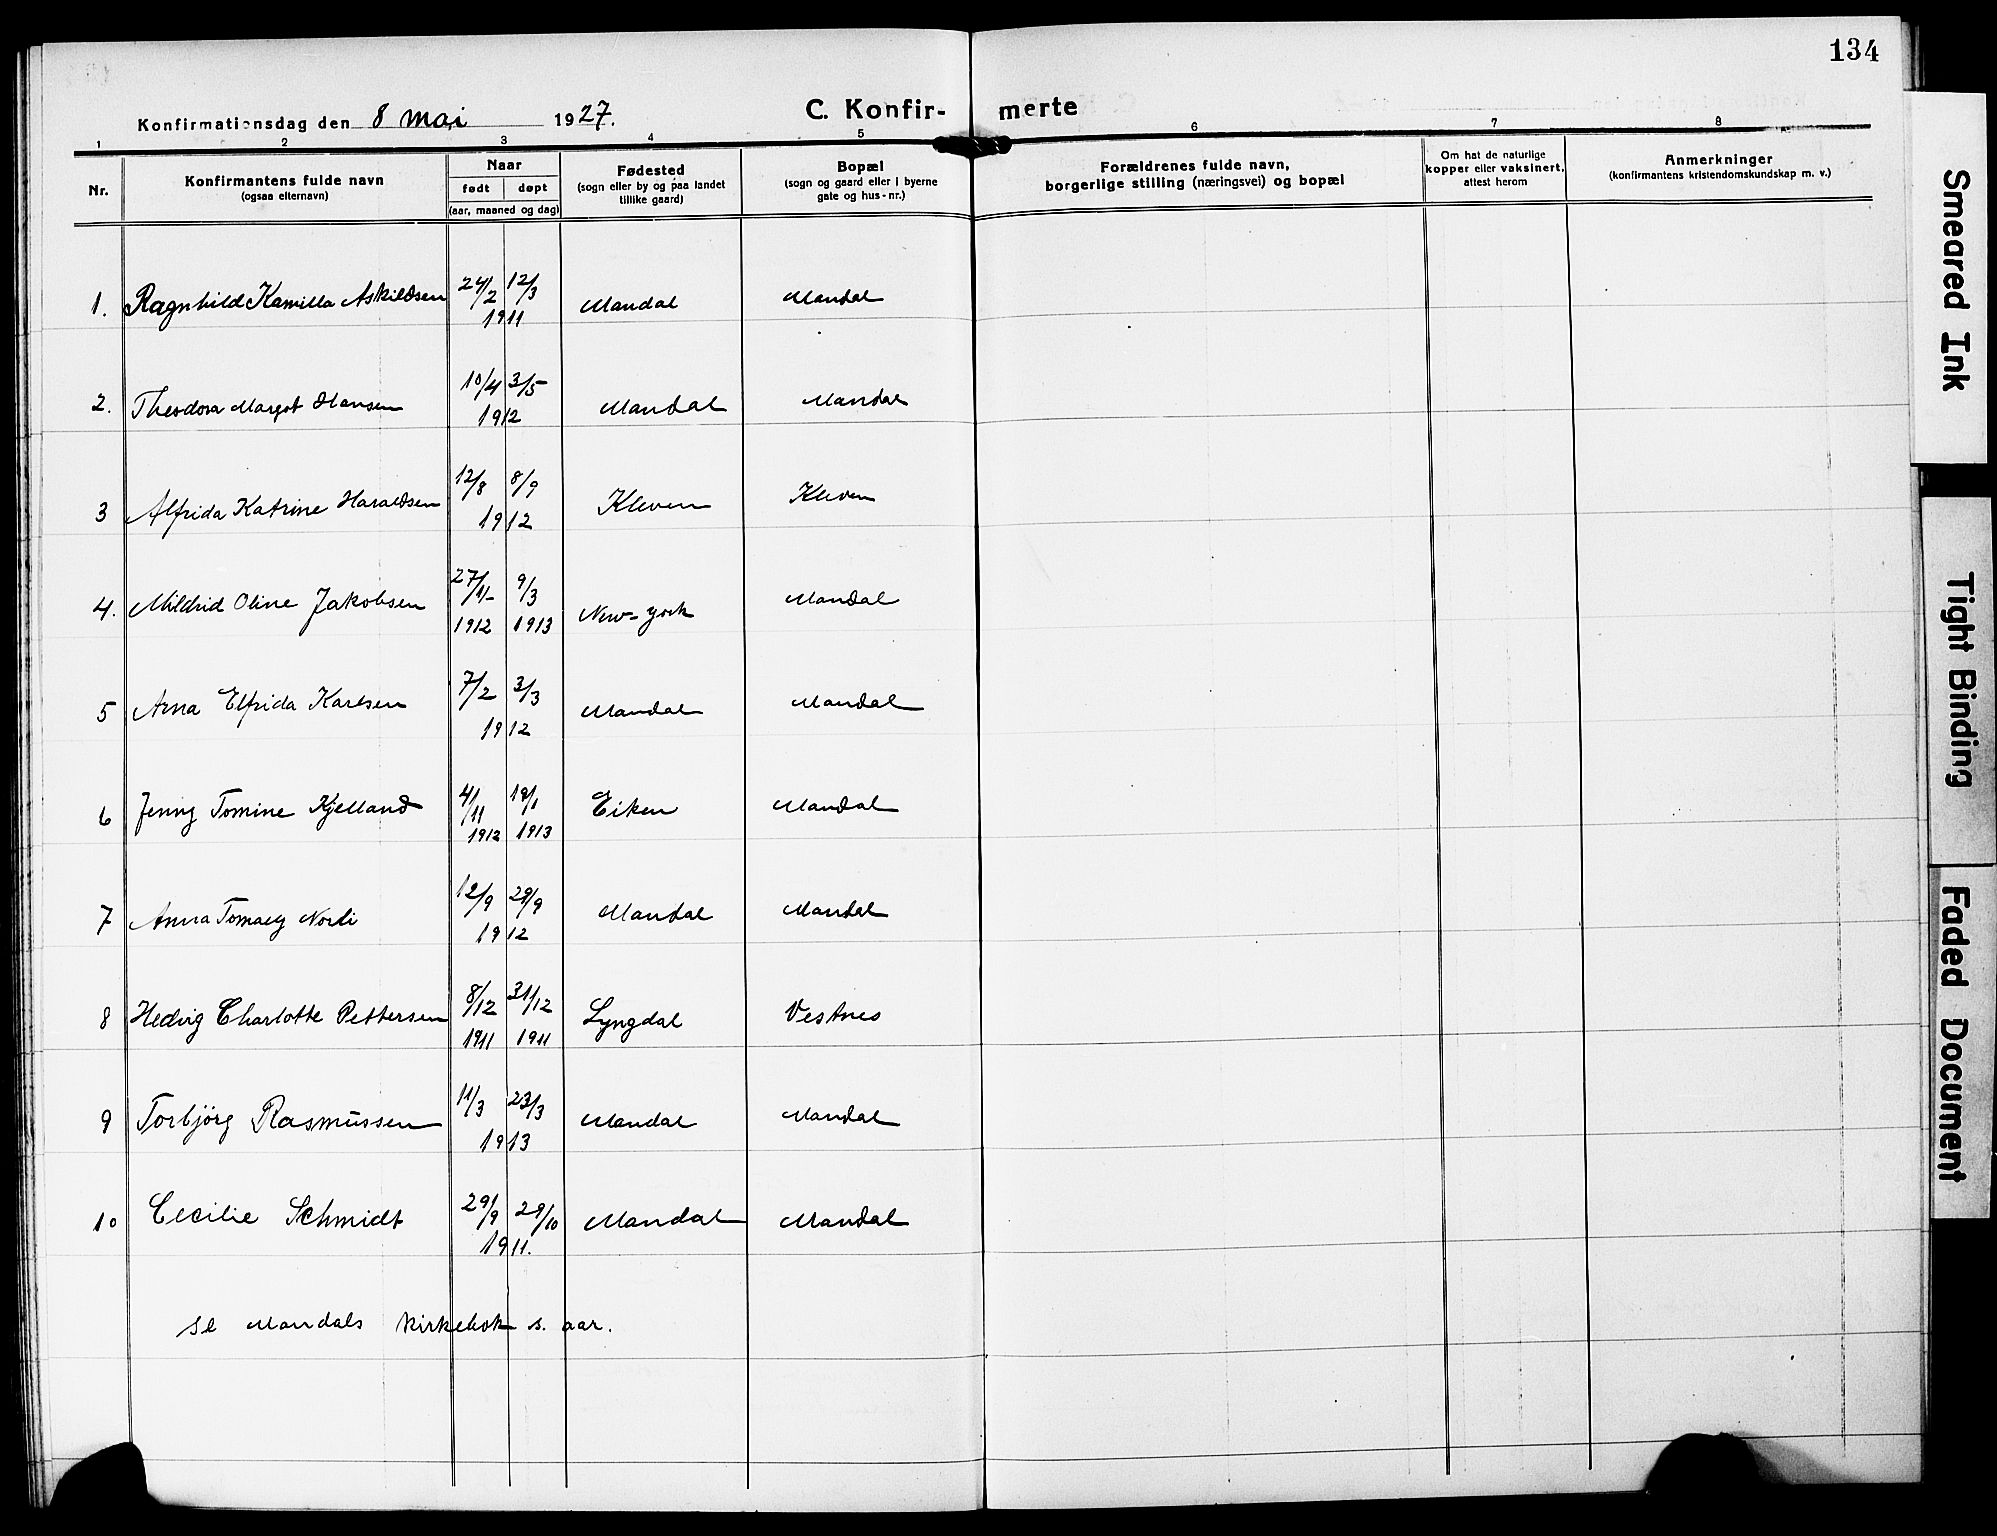 134
Konfirmationsdag den 8 mai 1927.
C. Konfir- merte
1 2 3 4 5 6 7 8
Nr.
Konfirmantens fulde navn
(ogsaa efternavn)
Naar
født døpt
(aar, maaned og dag)
Fødested
(sogn eller by og paa landet
tillike gaard)
Bopæl
(sogn og gaard eller i byerne
gate og hus-nr.)
Forældrenes fulde navn,
borgerlige stilling (næringsvei) og bopæl
Om hat de naturlige
kopper eller vaksinert,
attest herom
Anmerkninger
(konfirmantens kristendomskundskap m. v.)
1. Ragnhild Kamilla Askildsen 24/2 12/3 1911 Mandal Mandal
2. Theodora Margot Hansen 10/4 3/5 1912 Mandal Mandal
3 Alfrida Katrine Haraldsen 12/8 8/9 1912 Kleven Kleven
4. Mildrid Oline Jakobsen 27/11- 1912 9/3 1913 New-york Mandal
5 Arna Elfrida Karlsen 7/2 3/3 1912 Mandal Mandal
6 Jenny Tomine Kjelland 4/11 1912 19/1 1913 Eiken Mandal
7 Anna Nordi 12/9 29/9 1912 Mandal Mandal
8 Hedvig Charlotte Pettersen 8/12 1911 31/12 1911 Lyngdal Vestnes
9 Torbjörg Rasmussen 11/3 23/3 1913 Mandal Mandal
10 Cecilie Schmidt 29/9 29/10 1911. Mandal Mandal
se Mandals kirkebok s. aar.
Smeared Ink
Tight Binding
Faded Document